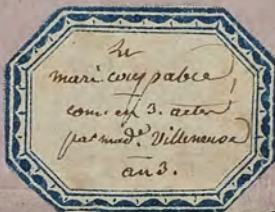 Le
mari coupable,
com. en 3. actes
par mad.e Villeneuve
an 3.